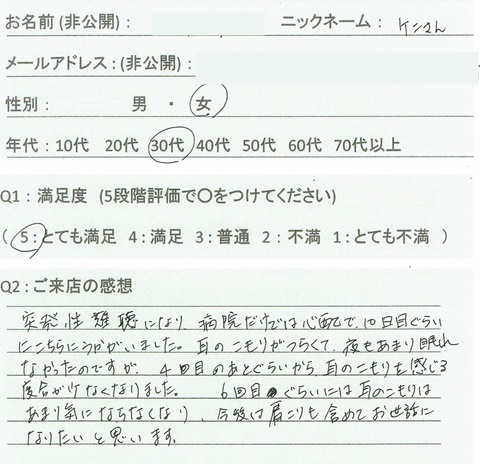 お名前(非公開)： ニックネーム： ケンさん
メールアドレス：(非公開)：
性別： 男 ・ 女
年代：10代 20代 30代 40代 50代 60代 70代以上
Q1：満足度 (5段階評価で〇をつけてください)
( 5：とても満足 4：満足 3：普通 2：不満 1：とても不満 )
Q2：ご来店の感想
突発性難聴になり、病院だけでは心配で、10日目ぐらい
にこちらにうかがいました。耳のこもりがつらくて、夜もあまり眠れ
なかったのですが、4回目のあとぐらいから耳のこもりを感じる
度合が少なくなりました。 6回目ぐらいには耳のこもりは
あまり気にならなくなり、今後は肩こりも含めてお世話に
なりたいと思います。